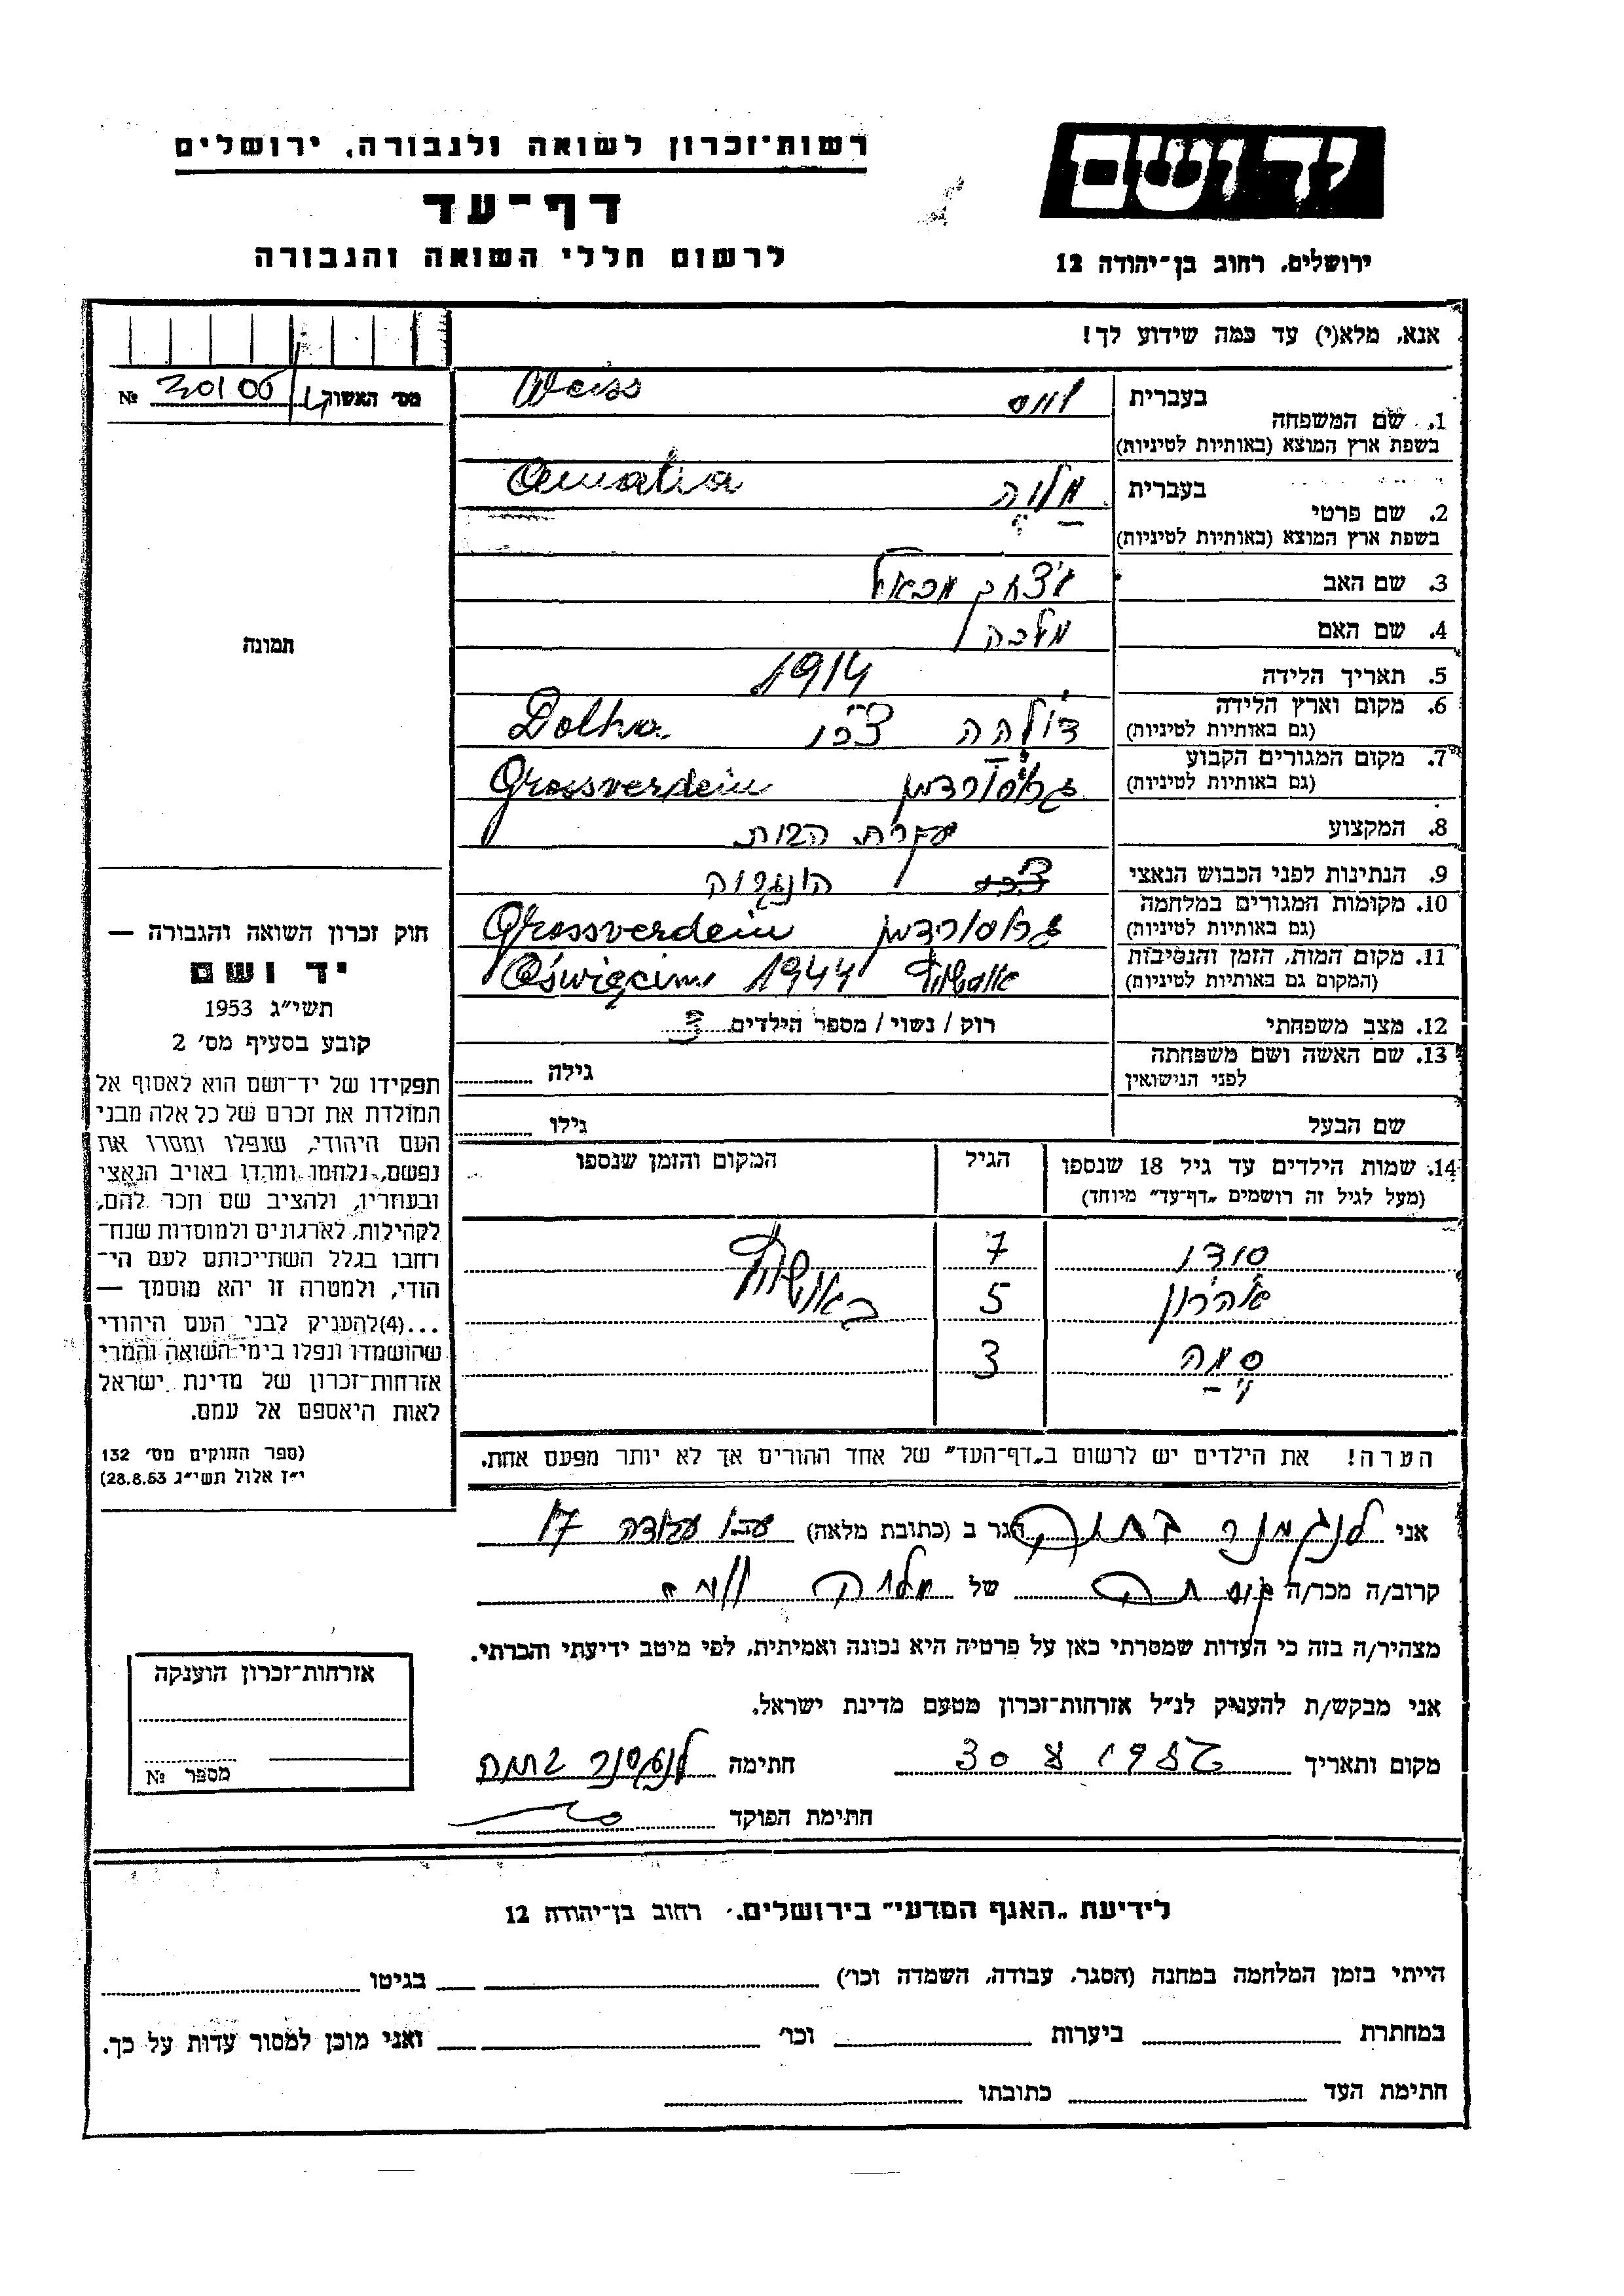 רשות־זכרון לשואה ולגבורה, ירושלים
דף־עד
לרשום חללי השואה והגבורה
יד ושם
ירושלים, רחוב בן־יהודה 12
אנא, מלא(י) עד כמה שידוע לך!
מס׳ האשוד № 30100
1. שם המשפחה בעברית ווייס Weiss
בשפת ארץ המוצא (באותיות לטיניות)
2. שם פרטי בעברית Amalia
בשפת ארץ המוצא (באותיות לטיניות)
3. שם האב יצחק מכאל
4. שם האם מלכה
5. תאריך הלידה 1914
6. מקום וארץ הלידה דולהה צ׳כו Dolha
(גם באותיות לטיניות)
7. מקום המגורים הקבוע גרוסורדיין Grossverdein
(גם באותיות לטיניות)
8. המקצוע עקרת הבית
9. הנתינות לפני הכבוש הנאצי הונגריה
10. מקומות המגורים במלחמה גרוסורדיין Grossverdein
(גם באותיות לטיניות)
11. מקום המות, הזמן והנסיבות אושוויץ 1944 Oświęcim
(המקום גם באותיות לטיניות)
12. מצב משפחתי רוק / נשוי / מספר הילדים 3
13. שם האשה ושם משפחתה לפני הנישואין גילה
שם הבעל גילו
14. שמות הילדים עד גיל 18 שנספו הגיל המקום והזמן שנספו
(מעל לגיל זה רושמים „דף־עד״ מיוחד)
7
אהרון 5 באושוויץ
3
הערה! את הילדים יש לרשום ב„דף־העד״ של אחד ההורים אך לא יותר מפעם אחת.
תמונה
חוק זכרון השואה והגבורה —
יד ושם
תשי״ג 1953
קובע בסעיף מס׳ 2
תפקידו של יד־ושם הוא לאסוף אל
המולדת את זכרם של כל אלה מבני
העם היהודי, שנפלו ומסרו את
נפשם, נלחמו ומרדו באויב הנאצי
ובעוזריו, ולהציב שם וזכר להם,
לקהילות, לארגונים ולמוסדות שנח־
רבו בגלל השתייכותם לעם הי־
הודי, ולמטרה זו יהא מוסמך —
...(4)להעניק לבני העם היהודי
שהושמדו ונפלו בימי השואה והמרי
אזרחות־זכרון של מדינת ישראל
לאות היאספם אל עמם.
(ספר החוקים מס׳ 132
י״ז אלול תשי״ג 28.8.53)
אני הגר ב (כתובת מלאה) 17
קרוב/ה מכר/ה של ווייס
מצהיר/ה בזה כי העדות שמסרתי כאן על פרטיה היא נכונה ואמיתית, לפי מיטב ידיעתי והכרתי.
אני מבקש/ת להעניק לנ״ל אזרחות־זכרון מטעם מדינת ישראל.
מקום ותאריך חתימה
חתימת הפוקד
אזרחות־זכרון הוענקה
מספר №
לידיעת „האגף המדעי״ בירושלים, רחוב בן־יהודה 12
הייתי בזמן המלחמה במחנה (הסגר, עבודה, השמדה וכו׳) בגיטו
במחתרת ביערות וכו׳ ואני מוכן למסור עדות על כך.
חתימת העד כתובתו